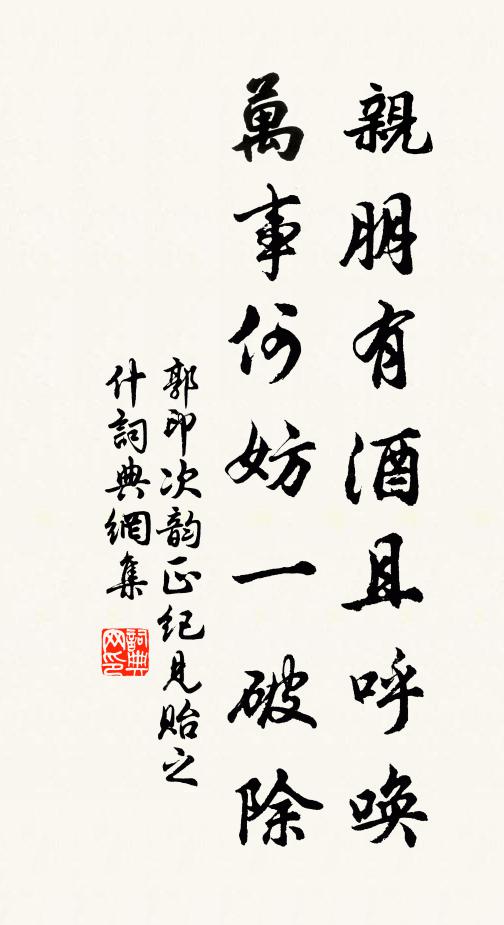 親朋有酒且呼喚
萬事何妨一破除
郭印次韵正纪見貽之
什詞典網集
詞典网印